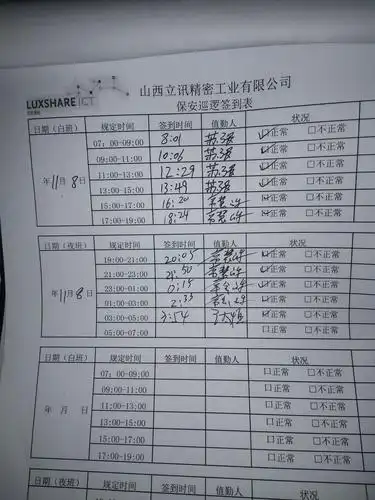 LUXSHARE ICT
山西立讯精密工业有限公司
保安巡逻签到表
日期（白班） 规定时间 签到时间 值勤人 状况
07：00-09:00 8:01 苏强 ☑正常 □不正常
09:00-11:00 10:06 苏强 ☑正常 □不正常
11:00-13:00 12:29 苏强 ☑正常 □不正常
年11月8日 13:00-15:00 13:49 苏强 ☑正常 □不正常
15:00-17:00 16:20 ☑正常 □不正常
17:00-19:00 18:24 ☑正常 □不正常
日期（夜班） 规定时间 签到时间 值勤人 状况
19:00-21:00 20:05 ☑正常 □不正常
21:00-23:00 21:50 ☑正常 □不正常
年11月8日 23:00-01:00 0:15 ☑正常 □不正常
01:00-03:00 2:33 ☑正常 □不正常
03:00-05:00 3:54 ☑正常 □不正常
05:00-07:00 □正常 □不正常
日期（白班） 规定时间 签到时间 值勤人 状况
07：00-09:00 □正常 □不正常
09:00-11:00 □正常 □不正常
年 月 日 11:00-13:00 □正常 □不正常
13:00-15:00 □正常 □不正常
15:00-17:00 □正常 □不正常
17:00-19:00 □正常 □不正常
日期（夜班） 规定时间 签到时间 值勤人 状况